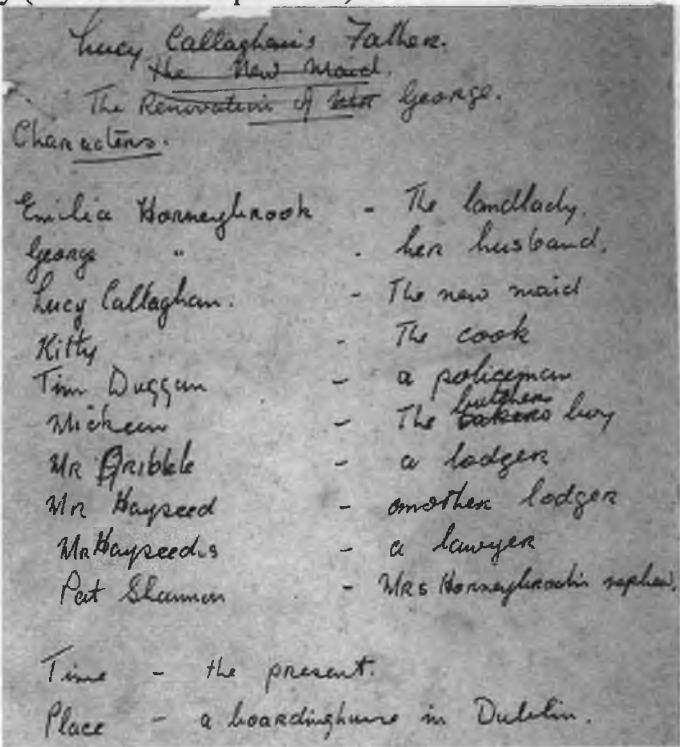 Lucy Callaghan's Father.
the New Maid.
The Renovation of George.
Characters.
Emilia Horneybrook - The landlady.
George " - her husband.
Lucy Callaghan. - The new maid
Kitty - The cook
Tim Duggan - a policeman
Mickeen - The butchers bakers boy
Mr Gribble - a lodger
Mr Hayseed - another lodger
Mr Hayseeds - a lawyer
Pat Shannon - Mrs Horneybrook's nephew.
Time - the present.
Place - a boardinghouse in Dublin.